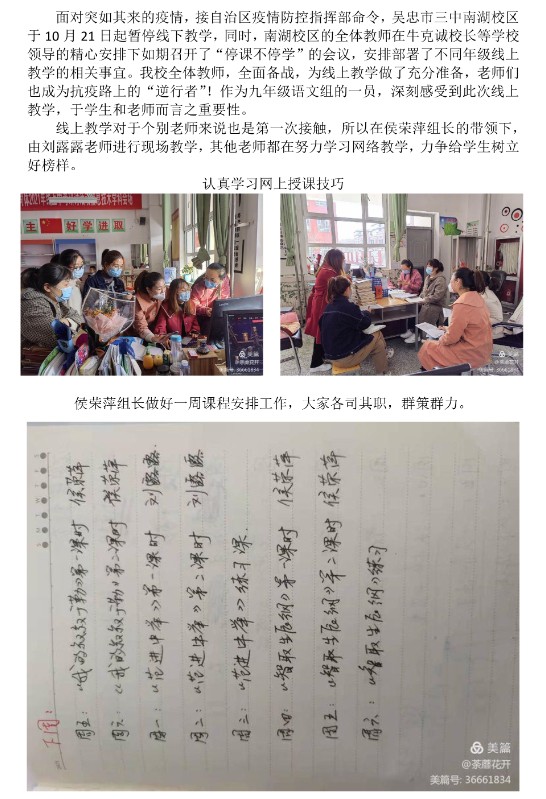 面对突如其来的疫情，接自治区疫情防控指挥部命令，吴忠市三中南湖校区
于 10 月 21 日起暂停线下教学，同时，南湖校区的全体教师在牛克诚校长等学校
领导的精心安排下如期召开了“停课不停学”的会议，安排部署了不同年级线上
教学的相关事宜。我校全体教师，全面备战，为线上教学做了充分准备，老师们
也成为抗疫路上的“逆行者”！作为九年级语文组的一员，深刻感受到此次线上
教学，于学生和老师而言之重要性。
线上教学对于个别老师来说也是第一次接触，所以在侯荣萍组长的带领下，
由刘露露老师进行现场教学，其他老师都在努力学习网络教学，力争给学生树立
好榜样。
认真学习网上授课技巧
主 好学进取
美篇
@荼蘼花开
美篇号: 36661834
美篇
@荼蘼花开
美篇号: 36661834
侯荣萍组长做好一周课程安排工作，大家各司其职，群策群力。
下周：
周五：《我的叔叔于勒》第一课时 侯荣萍
周六：《我的叔叔于勒》第二课时 侯荣萍
周一：《范进中举》第一课时 刘露露
周二：《范进中举》第二课时 刘露露
周三：《范进中举》练习课
周四：《智取生辰纲》第一课时 侯荣萍
周五：《智取生辰纲》第二课时 侯荣萍
周六：《智取生辰纲》练习
美篇
@荼蘼花开
美篇号: 36661834